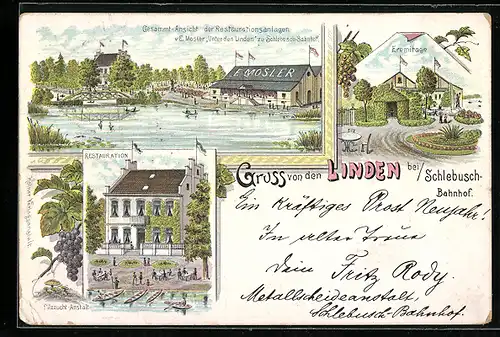 Gesammt-Ansicht der Restaurationsanlagen
v. E. Mosler „Unter den Linden" zu Schlebusch-Bahnhof.
E. MOSLER
Eremitage
RESTAURATION
Gruss von den LINDEN bei Schlebusch-
Bahnhof.
Ein kräftiges Prost Neujahr!
In alter Treue
Dein Fritz Rody.
Metallscheideanstalt,
Schlebusch-Bahnhof.